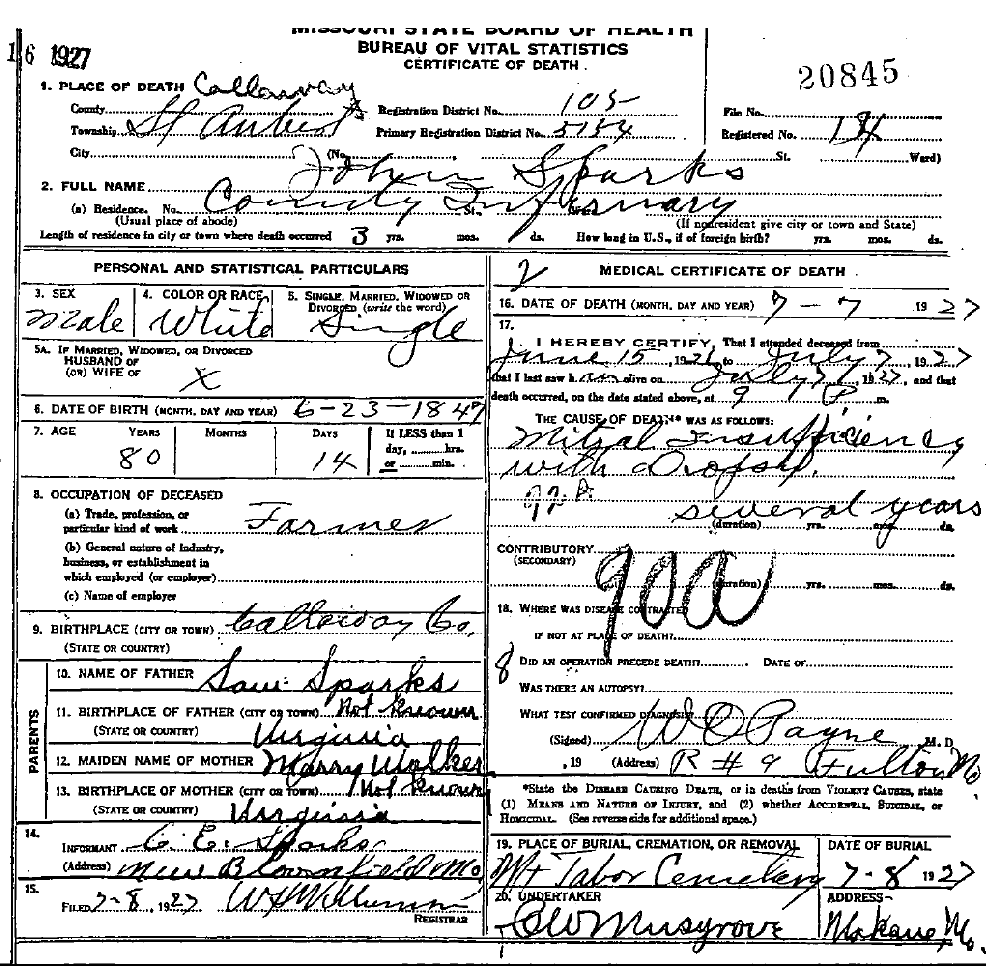 MISSOURI STATE BOARD OF HEALTH
BUREAU OF VITAL STATISTICS
CERTIFICATE OF DEATH
16 1927
20845
1. PLACE OF DEATH
County Callaway Registration District No. 105 File No.
Township St Aubert Primary Registration District No. 5154 Registered No.
City (No. St. Ward)
2. FULL NAME John Sparks
(a) Residence. No. County Infirmary St.
(Usual place of abode) (If nonresident give city or town and State)
Length of residence in city or town where death occurred 3 yrs. mos. ds. How long in U.S., if of foreign birth? yrs. mos. ds.
PERSONAL AND STATISTICAL PARTICULARS
3. SEX 4. COLOR OR RACE 5. SINGLE, MARRIED, WIDOWED OR DIVORCED (write the word)
Male White Single
5A. IF MARRIED, WIDOWED, OR DIVORCED
HUSBAND OF
(OR) WIFE OF X
6. DATE OF BIRTH (MONTH, DAY AND YEAR) 6-23-1847
7. AGE YEARS MONTHS DAYS If LESS than 1
day, hrs.
80 14 or min.
8. OCCUPATION OF DECEASED
(a) Trade, profession, or
particular kind of work Farmer
(b) General nature of industry,
business, or establishment in
which employed (or employer)
(c) Name of employer
9. BIRTHPLACE (CITY OR TOWN) Calloway Co.
(STATE OR COUNTRY)
PARENTS
10. NAME OF FATHER Sam Sparks
11. BIRTHPLACE OF FATHER (CITY OR TOWN) Not Known
(STATE OR COUNTRY) Virginia
12. MAIDEN NAME OF MOTHER Marry Walker
13. BIRTHPLACE OF MOTHER (CITY OR TOWN) Not Known
(STATE OR COUNTRY) Virginia
14.
INFORMANT C. E. Sparks
(Address) New Bloomfield Mo
15.
FILED 7-8, 1927
REGISTRAR
2 MEDICAL CERTIFICATE OF DEATH
16. DATE OF DEATH (MONTH, DAY AND YEAR) 7 - 7 1927
17.
I HEREBY CERTIFY, That I attended deceased from
June 15, 1926, to July 7, 1927
that I last saw h alive on July 7, 1927, and that
death occurred, on the date stated above, at 9 P m.
THE CAUSE OF DEATH* WAS AS FOLLOWS:
Mitral Insufficiency
with Dropsy.
several years
(duration) yrs. mos. ds.
CONTRIBUTORY
(SECONDARY)
90a
(duration) yrs. mos. ds.
18. WHERE WAS DISEASE CONTRACTED
IF NOT AT PLACE OF DEATH?
8 DID AN OPERATION PRECEDE DEATH? DATE OF
WAS THERE AN AUTOPSY?
WHAT TEST CONFIRMED DIAGNOSIS?
(Signed) W O Payne M. D
, 19 (Address) R # 9 Fulton Mo
*State the DISEASE CAUSING DEATH, or in deaths from VIOLENT CAUSES, state
(1) MEANS AND NATURE OF INJURY, and (2) whether ACCIDENTAL, SUICIDAL, or
HOMICIDAL. (See reverse side for additional space.)
19. PLACE OF BURIAL, CREMATION, OR REMOVAL DATE OF BURIAL
Mt Tabor Cemetery 7-8 1927
20. UNDERTAKER ADDRESS
CW Musgrove Mokane, Mo.